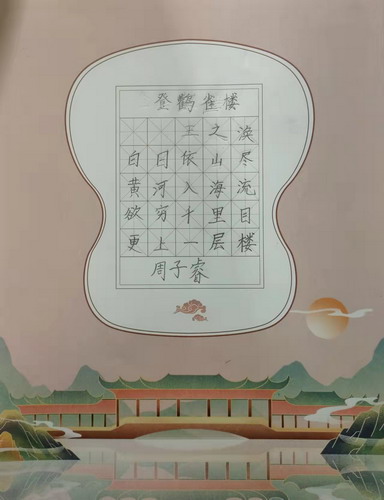 登鹳雀楼
王之涣
白日依山尽
黄河入海流
欲穷千里目
更上一层楼
周子睿